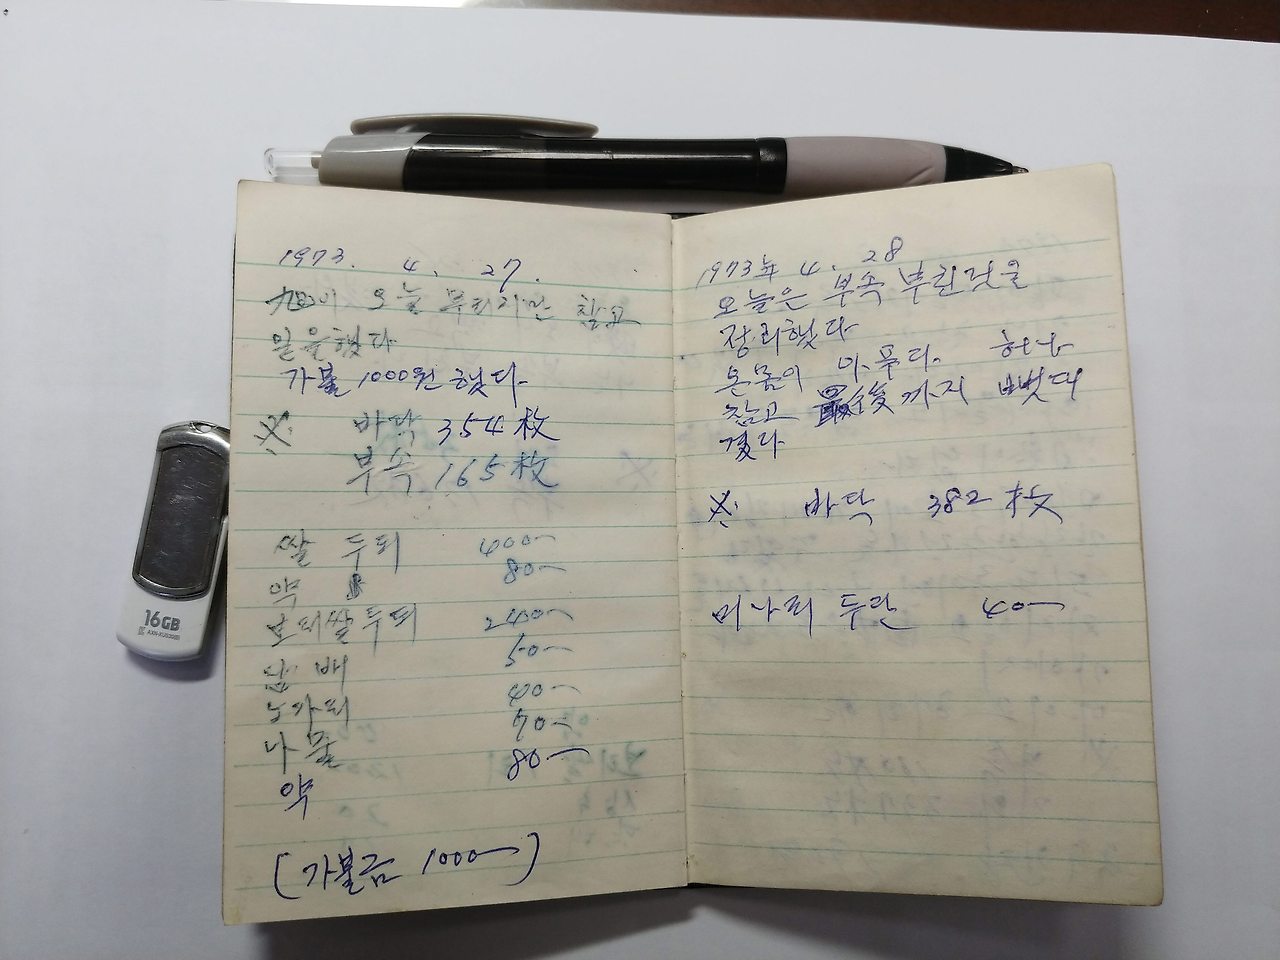 1973. 4. 27.
旭이 오늘 무리지만 참고
일을했다
가불 1000원 했다.
※ 바닥 354枚
부속 165枚
쌀 두되 400—
약 80—
보리쌀두되 240—
담배 50—
노가리 40—
나물 70—
약 80—
(가불금 1000—)
1973年 4. 28
오늘은 부속 부린것을
정리했다
온몸이 아푸다. 허나
참고 最後까지 뻗대
겠다
※ 바닥 382枚
미나리 두단 40—
16GB